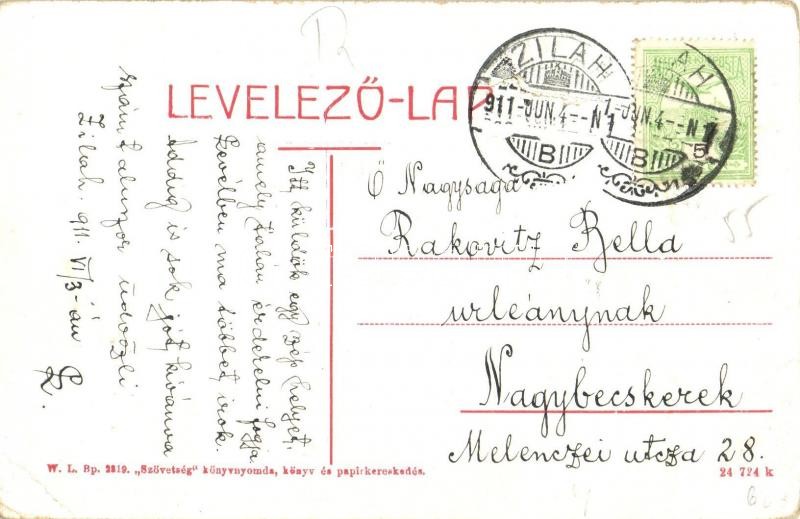 LEVELEZŐ-LAP
ZILAH
911-JUN.4--N1
B
ZILAH
1-JUN.4--N1
B
5
POSTA
Ő Nagysága
Rakovitz Bella
urleánynak
Nagybecskerek
Melenczei utcza 28.
55
Itt küldök egy szép helyet,
amely talán érdekelni fogja
Levélben ma többet irok.
Addig is sok jót kivánva
számtalanszor üdvözli
Zilah. 911. VI/3-án
R.
W. L. Bp. 2819. „Szövetség" könyvnyomda, könyv és papirkereskedés.
24 724 k